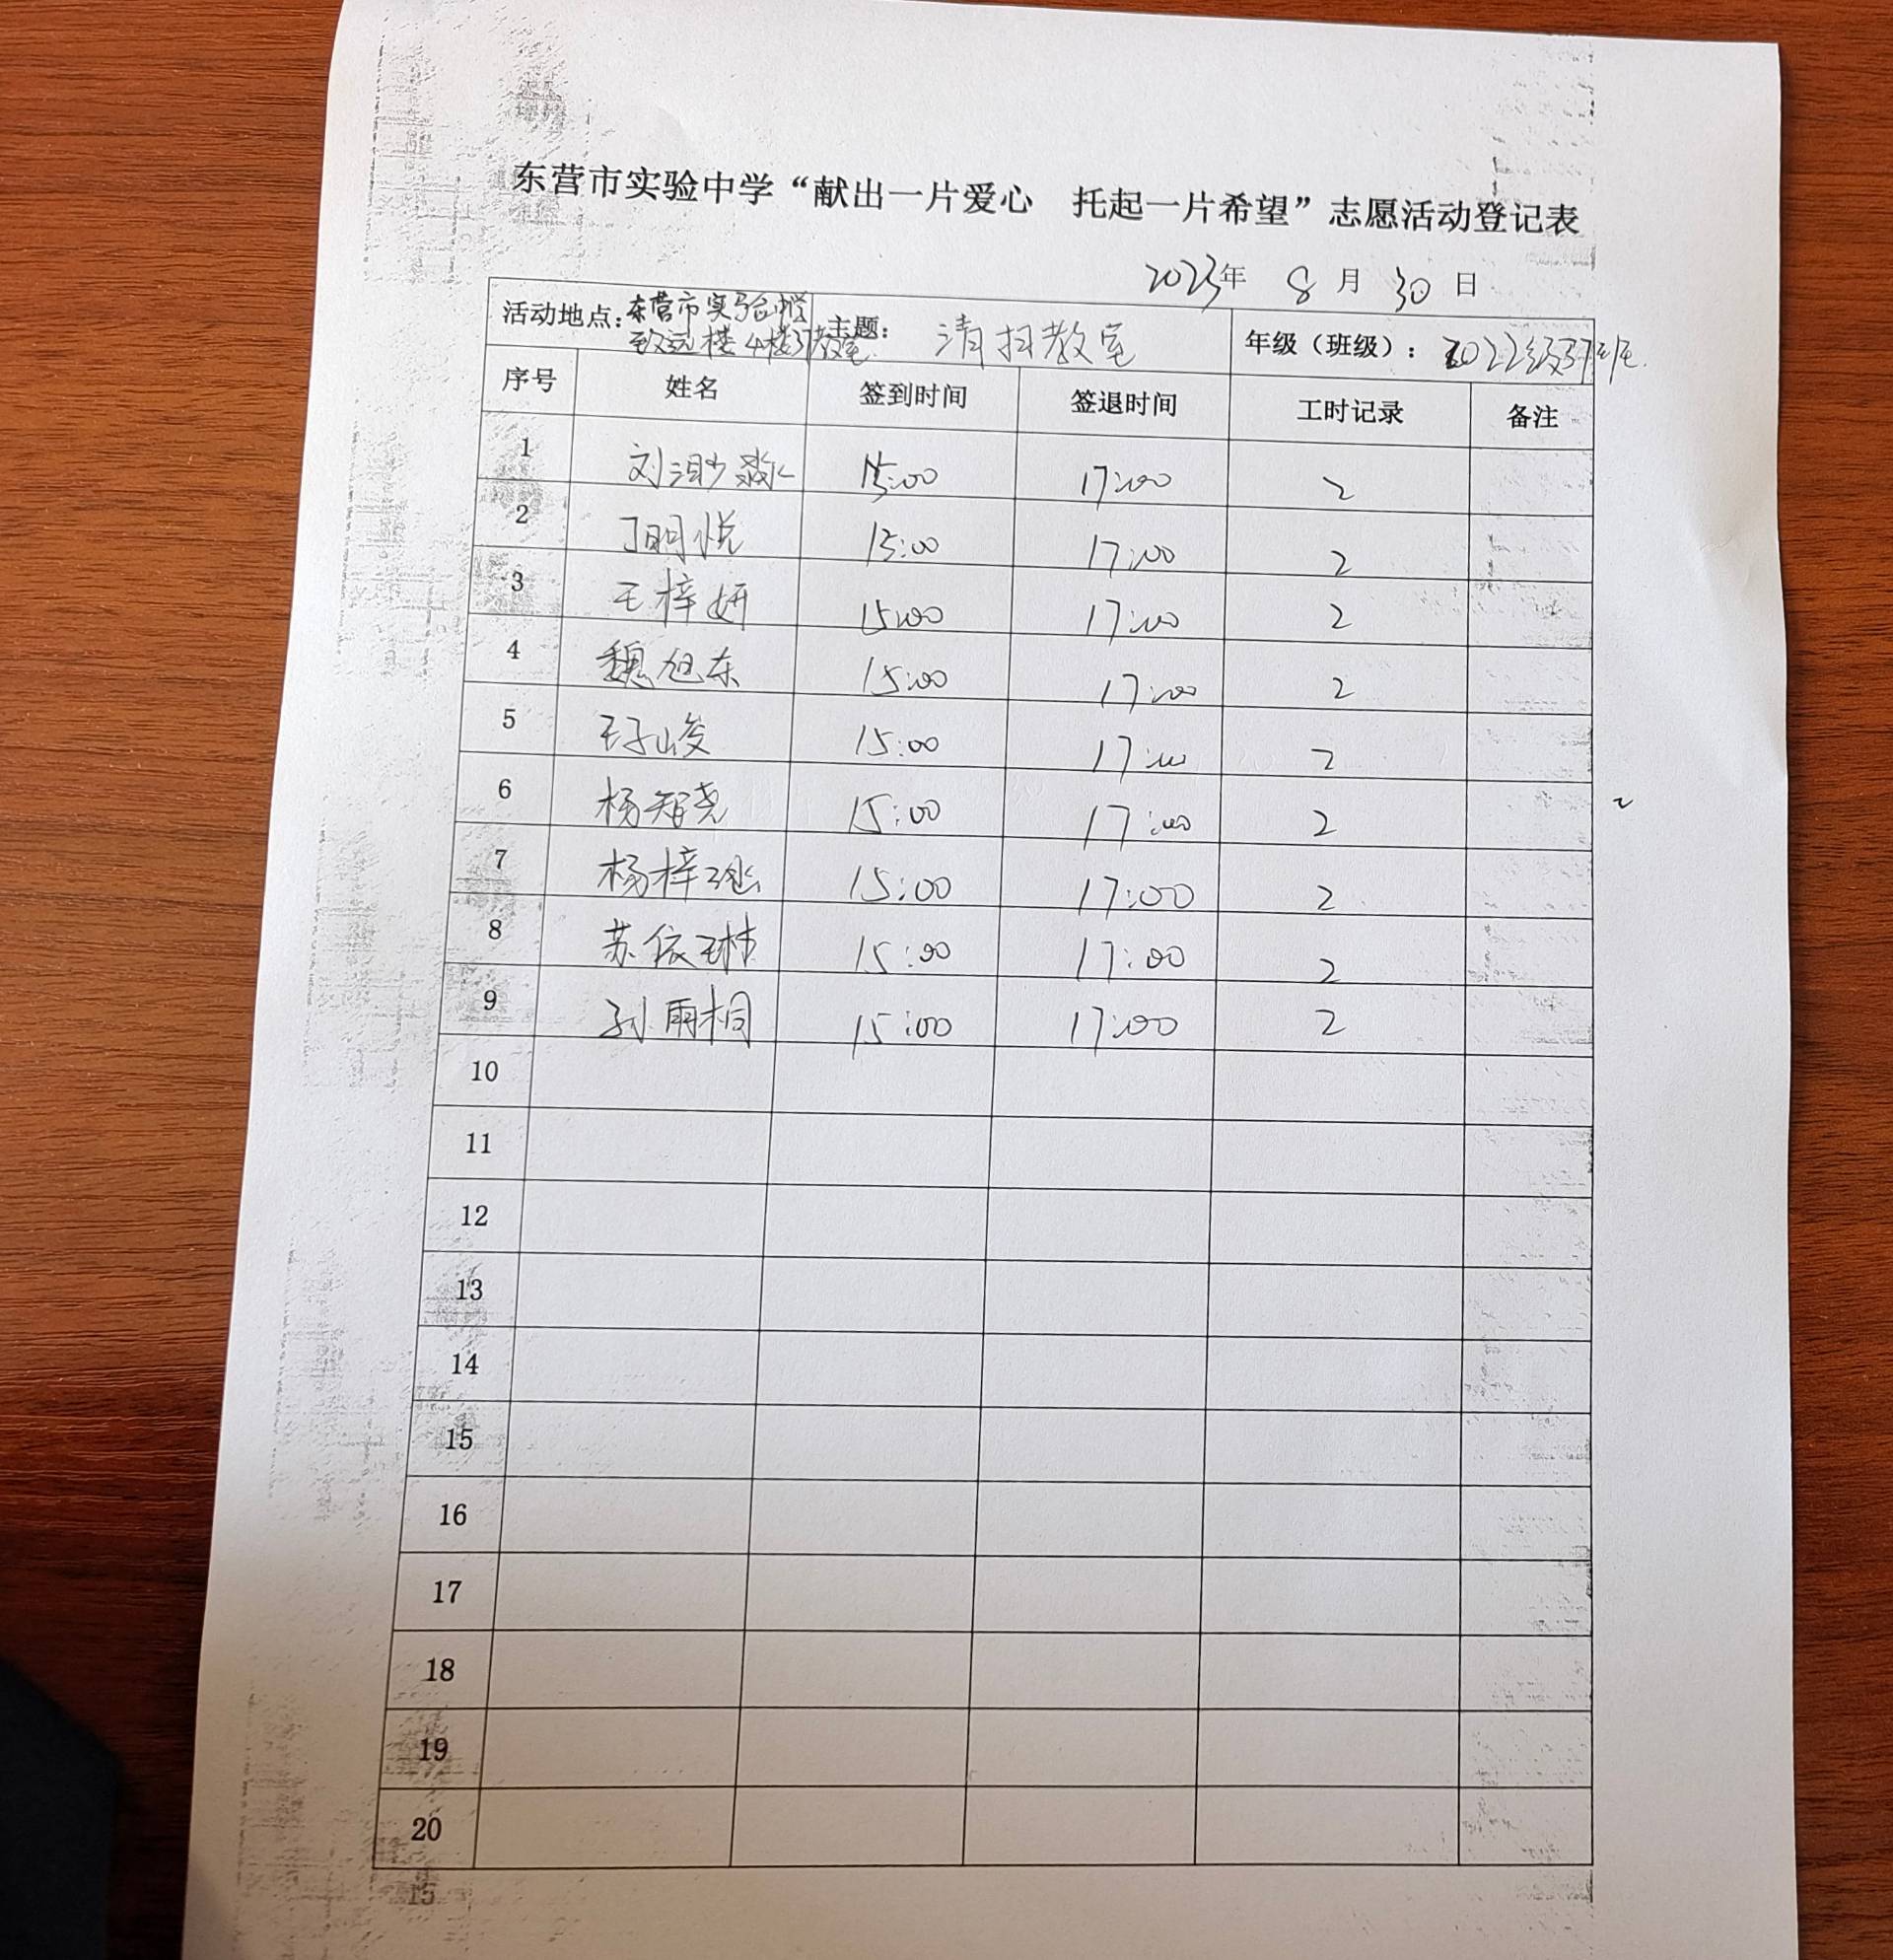 东营市实验中学“献出一片爱心 托起一片希望”志愿活动登记表
2023年 8 月 30 日
活动地点：东营市实验中学 致远楼4楼37教室 主题： 清扫教室 年级（班级）：2022级37班
序号 姓名 签到时间 签退时间 工时记录 备注
1 刘 15:00 17:00 2
2 丁明悦 15:00 17:00 2
3 王梓妍 15:00 17:00 2
4 魏旭东 15:00 17:00 2
5 王子峻 15:00 17:00 2
6 杨智尧 15:00 17:00 2
7 杨梓 15:00 17:00 2
8 苏依琳 15:00 17:00 2
9 孙雨桐 15:00 17:00 2
10
11
12
13
14
15
16
17
18
19
20
15